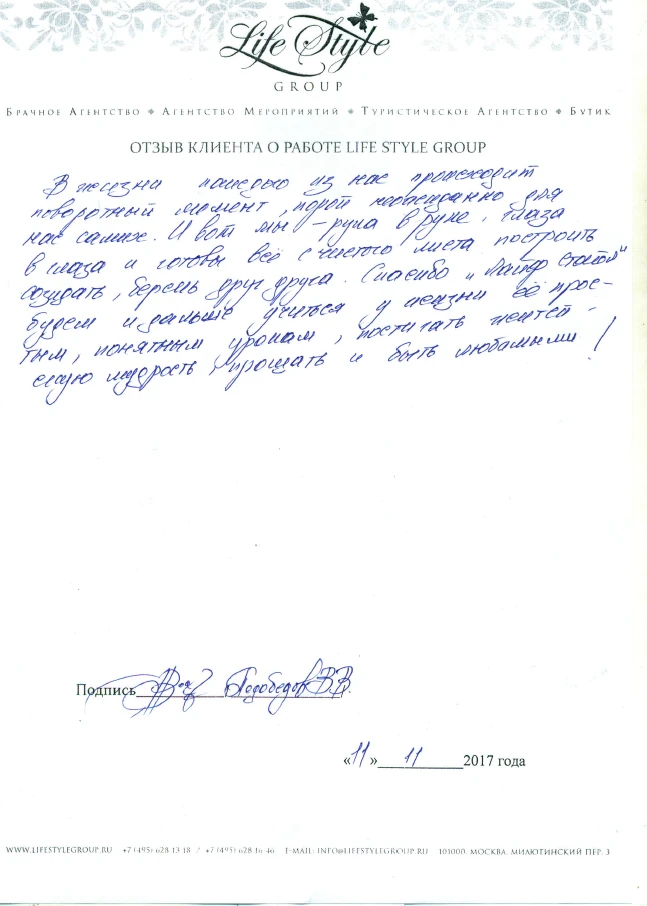 Life Style
GROUP
БРАЧНОЕ АГЕНТСТВО ◆ АГЕНТСТВО МЕРОПРИЯТИЙ ◆ ТУРИСТИЧЕСКОЕ АГЕНТСТВО ◆ БУТИК
ОТЗЫВ КЛИЕНТА О РАБОТЕ LIFE STYLE GROUP
В жизни каждого из нас происходит
поворотный момент, порой неожиданно для
нас самих. И вот мы - рука в руке, глаза
в глаза и готовы всё с чистого листа построить
создать, беречь друг друга. Спасибо „Лайф Стайл"
будем и дальше учиться у жизни её прос-
тым, понятным урокам, постигать житей-
скую мудрость, прощать и быть любимыми!
Подпись Подобедов В.В.
«11» 11 2017 года
WWW.LIFESTYLEGROUP.RU +7 (495) 628 13 18 +7 (495) 628 16 46 E-MAIL: INFO@LIFESTYLEGROUP.RU 101000, МОСКВА, МИЛЮТИНСКИЙ ПЕР. 3